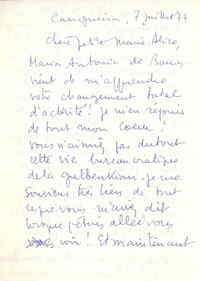 7 juillet 77
chère Marie Alice,
Maria Antonia de
vient de m'apprendre
votre changement total
d'activité! je m'en réjouis
de tout mon coeur!
vous n'aimiez pas du tout
cette vie bureaucratique
de la gulbenkian. je me
souviens très bien de tout
ce que vous m'aviez dit
lorsque j'étais allée vous
voir! Et maintenant